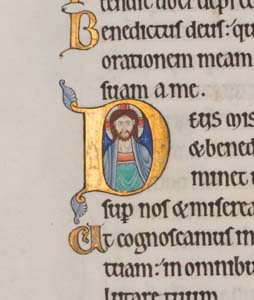 Benedictus deus: qu
orationem meam
suam a me.
Deus mis
& bened
minet
sup nos & miserea
Ut cognoscamus in
tuam: in omnibu
lutare tuum